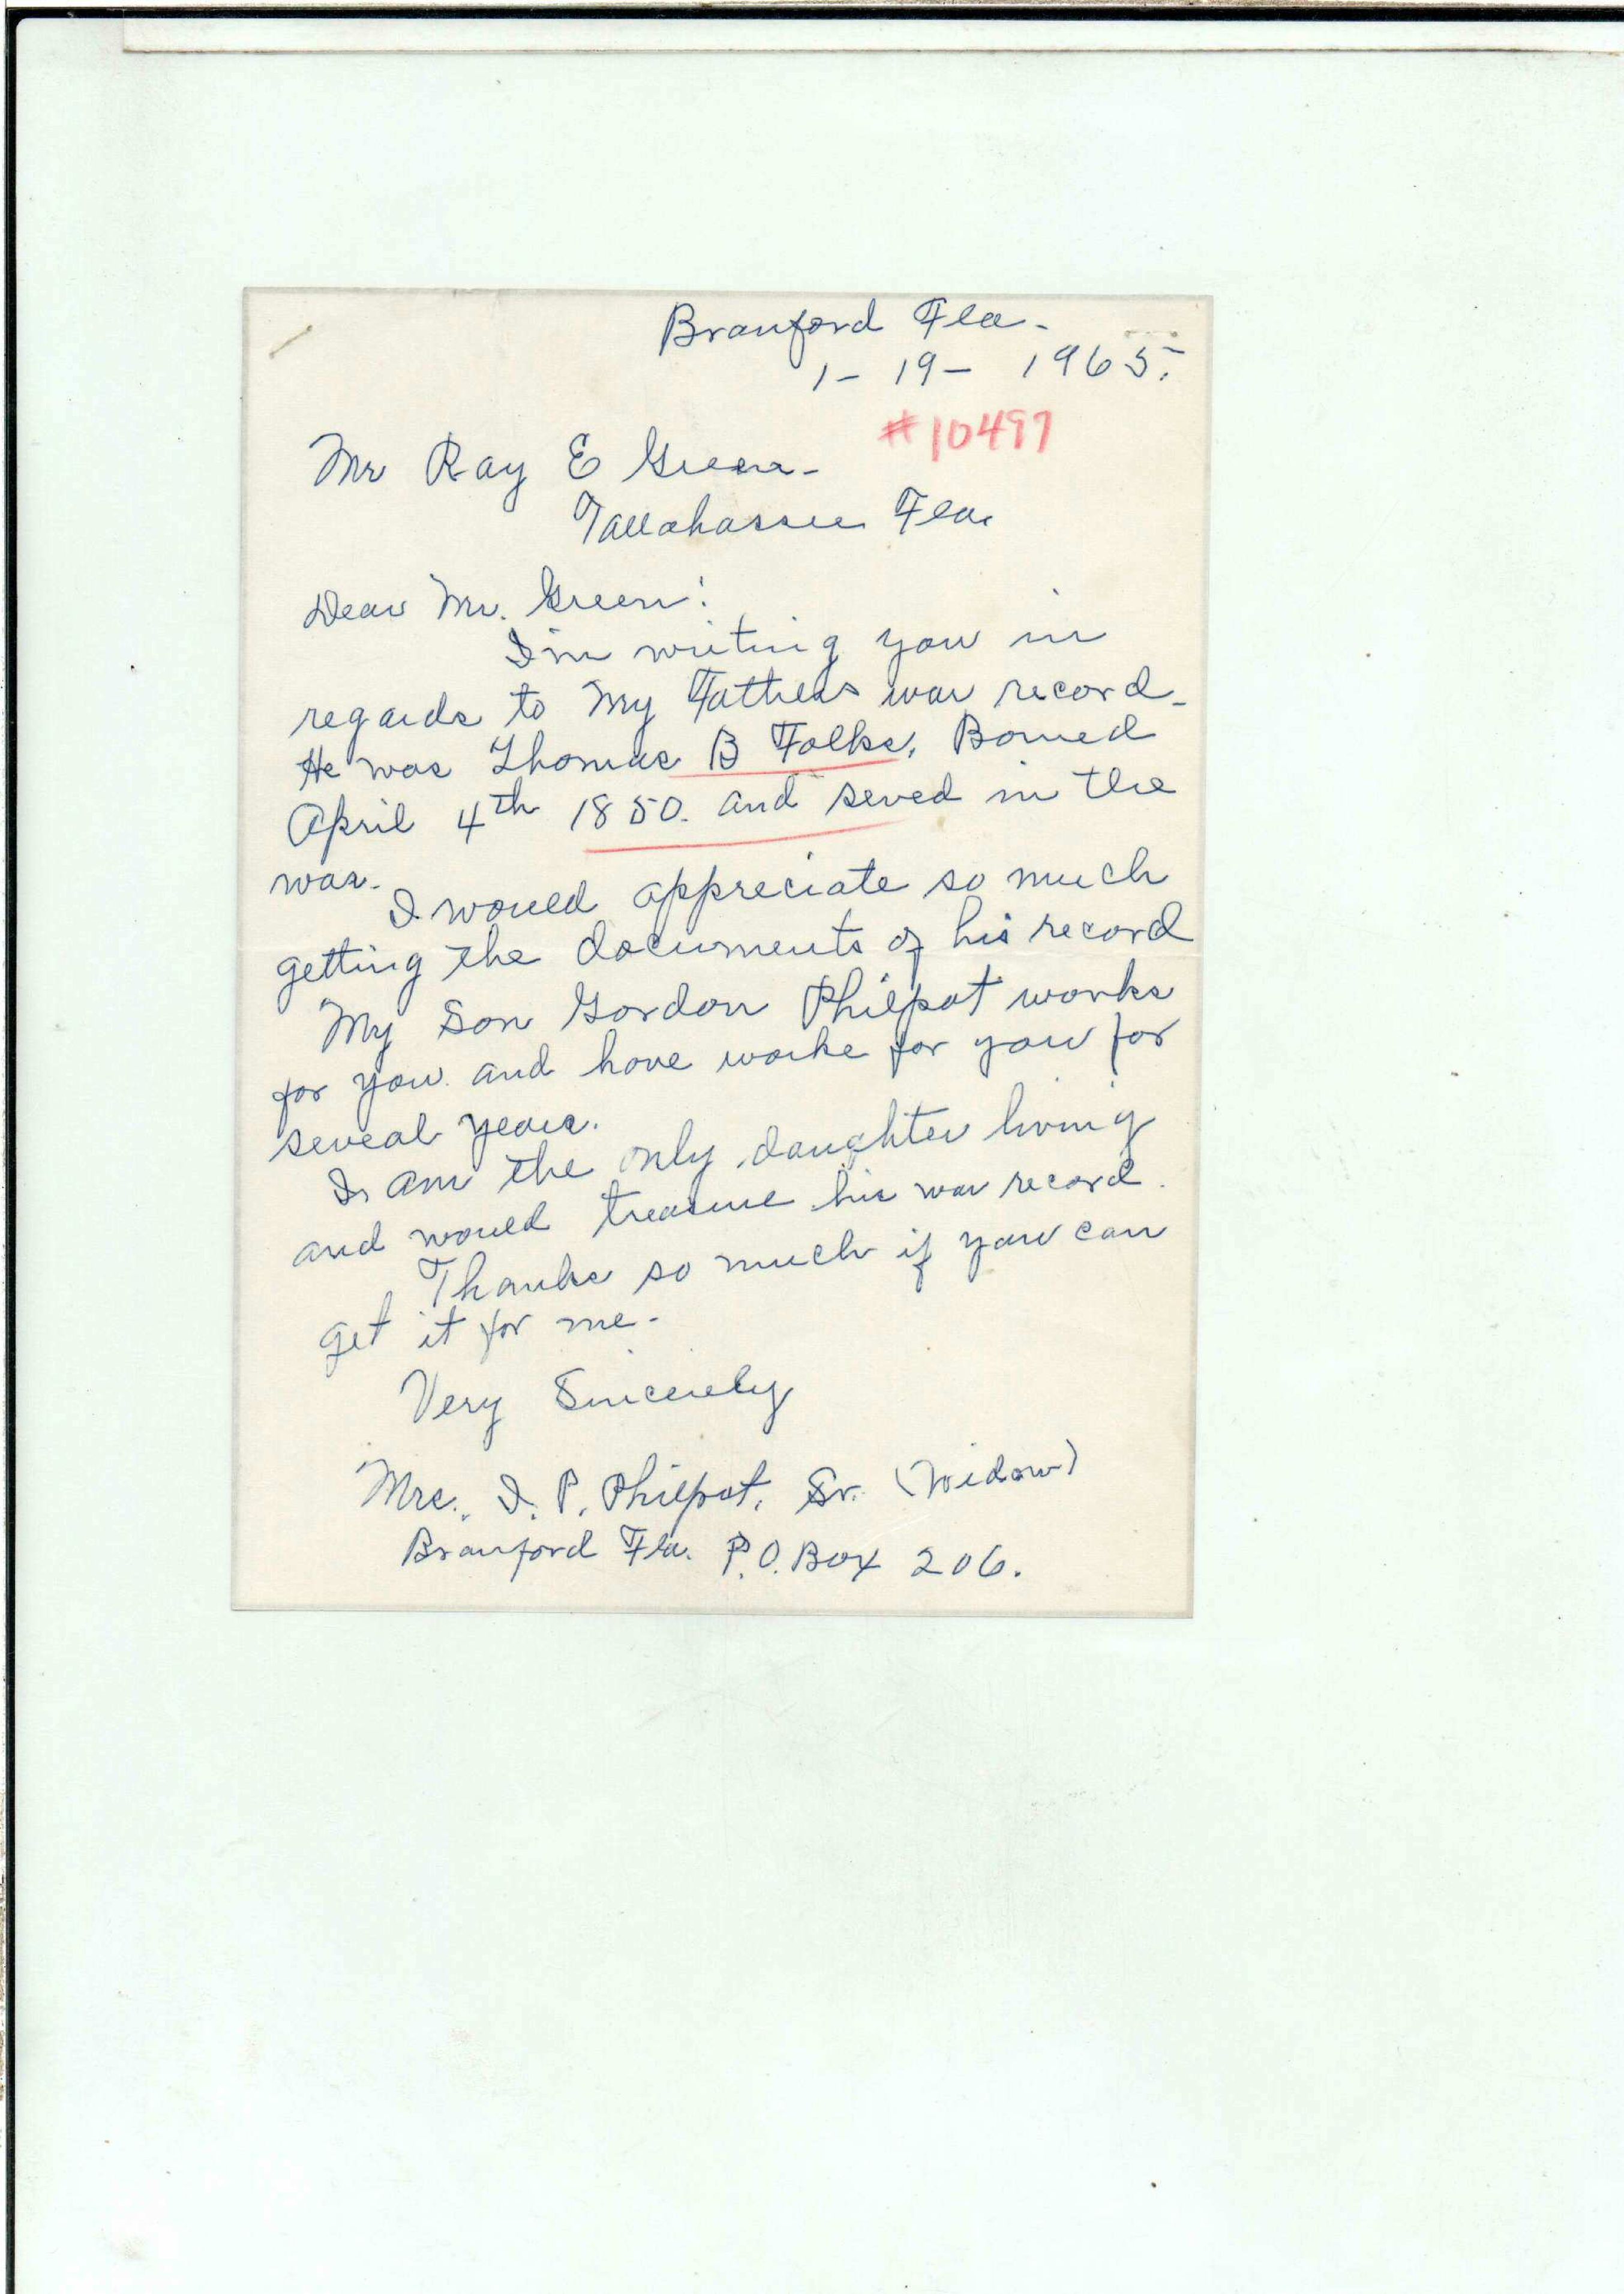 Branford Fla-
1- 19- 1965.
#10497
Mr Ray E Green-
Tallahassee Fla.
Dear Mr. Green:
I'm writing you in
regards to My Fathers war record-
He was Thomas B Folks, Borned
April 4th 1850. and seved in the
war.
I would appreciate so much
getting the documents of his record
My Son Gordon Philpot works
for you and have worke for you for
seveal years.
I am the only daughter living
and would treasure his war record.
Thanks so much if you can
get it for me-
Very Sincerely
Mrs. I. P. Philpot, Sr. (Widow)
Branford Fla. P.O. Box 206.